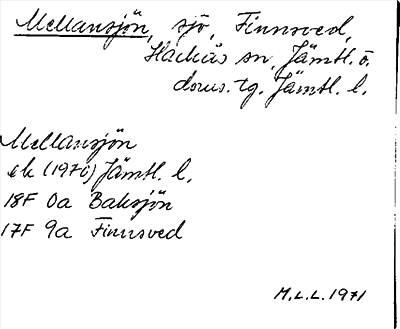 Mellansjön, sjö, Finnsved,
Hackås sn, Jämtl. ö.
doms. tg. Jämtl. l.
Mellansjön
ek (1970) Jämtl. l.
18F 0a Baksjön
17F 9a Finnsved
M.L.L. 1971